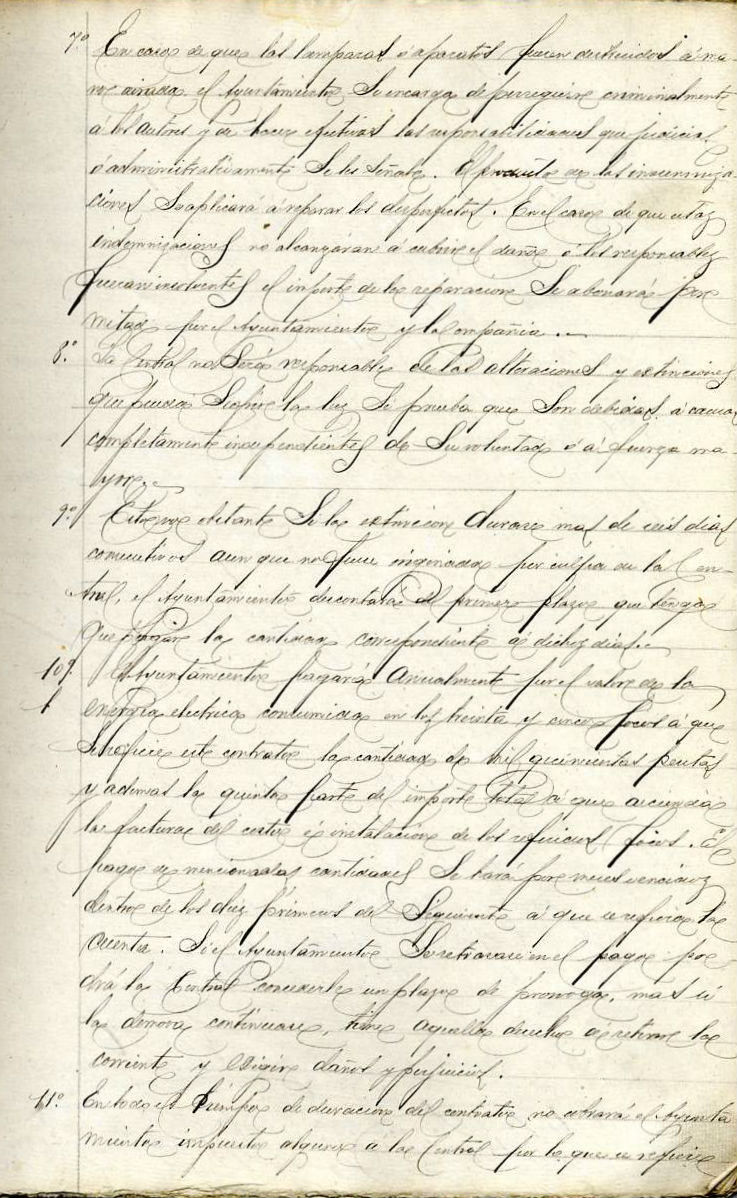 7º En caso de que las lamparas ó aparatos fueren destruidos á ma-
no airada el Ayuntamiento se encarga de perseguir criminalmente
á los autores y de hacer efectivas las responsabilidades que judicial
ó administrativamente se les señale. El producto de las indemniza-
ciones se aplicará á reparar los desperfectos. En el caso de que estas
indemnizaciones no alcanzaran á cubrir el daño ó los responsables
fueran insolventes el importe de la reparacion se abonará por
mitad por el Ayuntamiento y la Compañia.
8º La Central no será responsable de las alteraciones y extinciones
que pueda sufrir la luz si prueba que son debidas á causas
completamente independientes de su voluntad ó á fuerza ma-
yor.
9º Esto no obstante si la extincion durase mas de seis dias
consecutivos aun que no fuese originada por culpa de la Cen-
tral, el Ayuntamiento descontará del primer plazo que tenga
que pagar la cantidad correspondiente á dichos dias.
10º El Ayuntamiento pagará anualmente por el valor de la
energia electrica consumida en los treinta y cinco focos á que
se refiere este contrato la cantidad de mil quinientas pesetas
y ademas la quinta parte del importe total á que ascienda
la factura del coste é instalacion de los referidos focos. El
pago de mencionadas cantidades se hará por meses vencidos
dentro de los diez primeros del siguiente á que se refiera la
cuenta. Si el Ayuntamiento se retrasase en el pago po-
drá la Central concederle un plazo de prorroga, mas si
la demora continuase, tiene aquella derecho á retirar la
corriente y exigir daños y perjuicios.
11º En todo el tiempo de duracion del contrato no cobrará el Ayunta
miento impuesto alguno á la Central por lo que se refiere